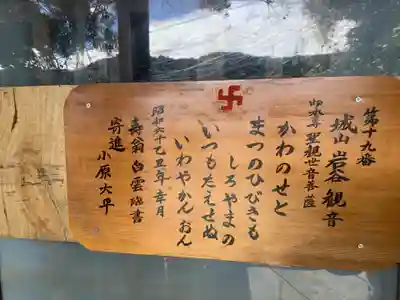 第十九番
城山 岩谷観音
御本尊 聖観世音菩薩
かわのせと
まつのひびきも
しろやまの
いつもたえせぬ
いわやかんおん
昭和六十乙丑年幸月
寿翁 白雲 臨書
寄進 小原大平
卐